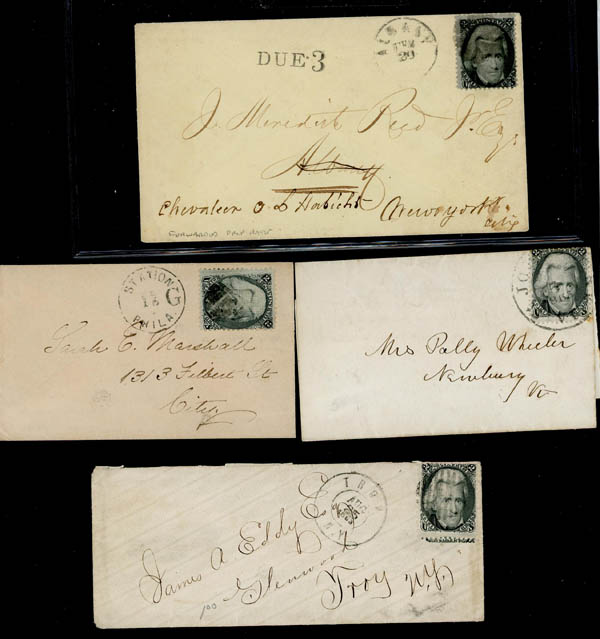 DUE 3
ALBANY
JUN
29
J. Meredith Read Jr. Esq.
Albany
Chevalier O L Habicht Newyork
City
STATION G
PHILA
Sarah E. Marshall
1313 Filbert St
City
Mrs Polly Wheeler
Newbury
Vt
TROY
AUG
N.Y.
James A Eddy
Glenwood
Troy N.Y.